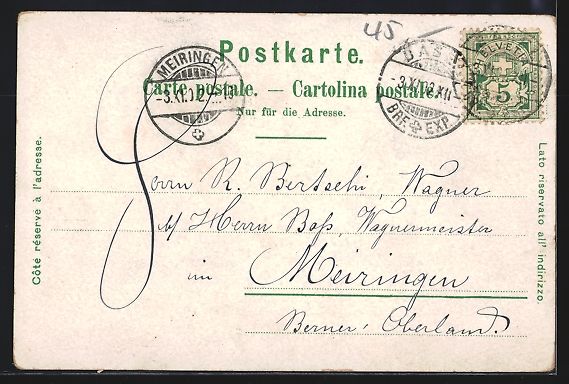 45
Postkarte.
Carte postale. — Cartolina postale.
Nur für die Adresse.
MEIRINGEN
BAS
3.XI.02.XII
BRF EXP
HELVETIA
5
Côté réservé à l'adresse.
Lato riservato all' indirizzo
Herrn R. Bertschi, Wagner
b/ Herrn Boß, Wagnermeister
im Meiringen
Berner Oberland.